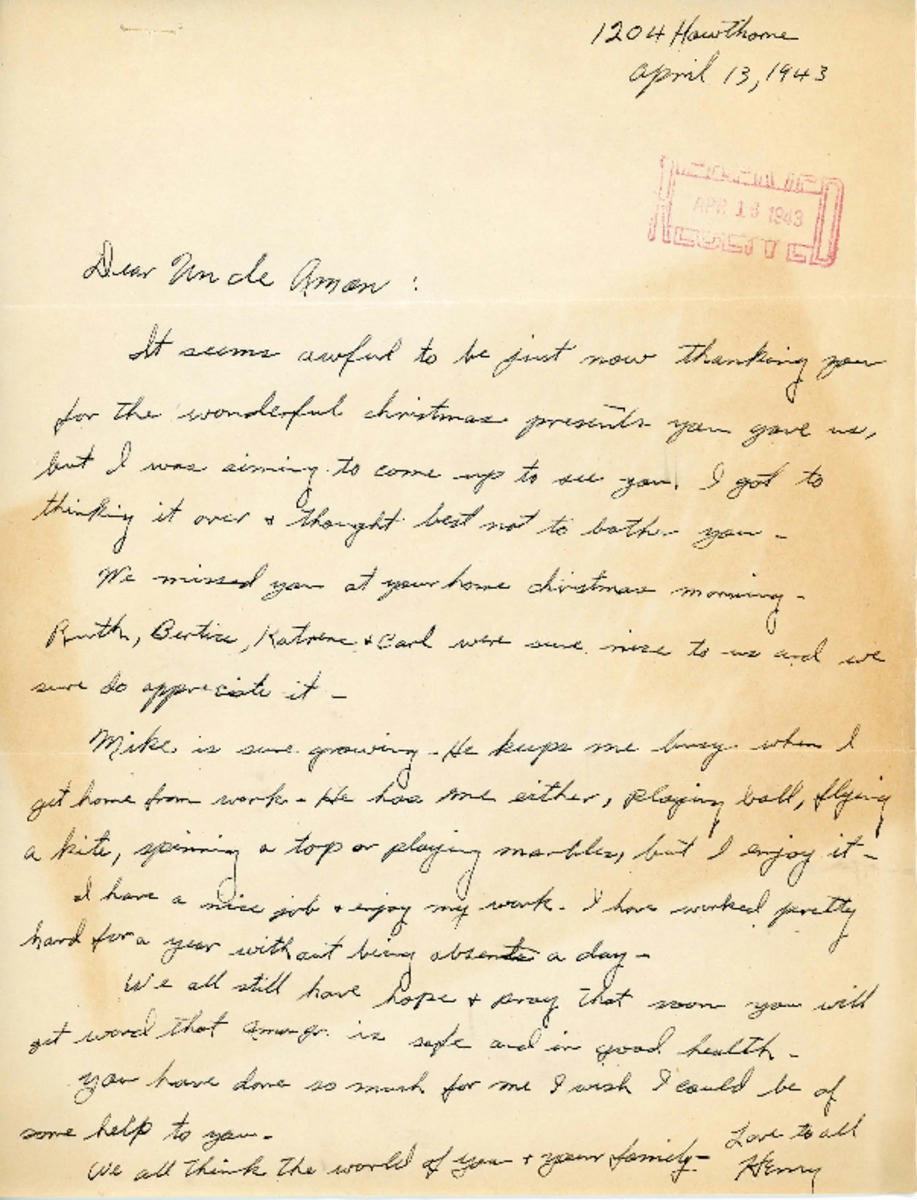 1204 Hawthorne
April 13, 1943
APR 16 1943
RECEIVED
Dear Uncle Amon :
It seems awful to be just now thanking you
for the wonderful christmas presents you gave us,
but I was aiming to come up to see you. I got to
thinking it over & thought best not to bother you -
We missed you at your home christmas morning -
Ruth, Bertice, Katrine & Carl were sure nice to us and we
sure do appreciate it -
Mike is sure growing - He keeps me busy when I
get home from work - He has me either, playing ball, flying
a kite, spinning a top or playing marbles, but I enjoy it -
I have a nice job & enjoy my work - I have worked pretty
hard for a year without being absent a day -
We all still have hope & pray that soon you will
get word that Amon Jr. is safe and in good health -
You have done so much for me I wish I could be of
some help to you -
We all think the world of you & your family -
Love to all
Henry